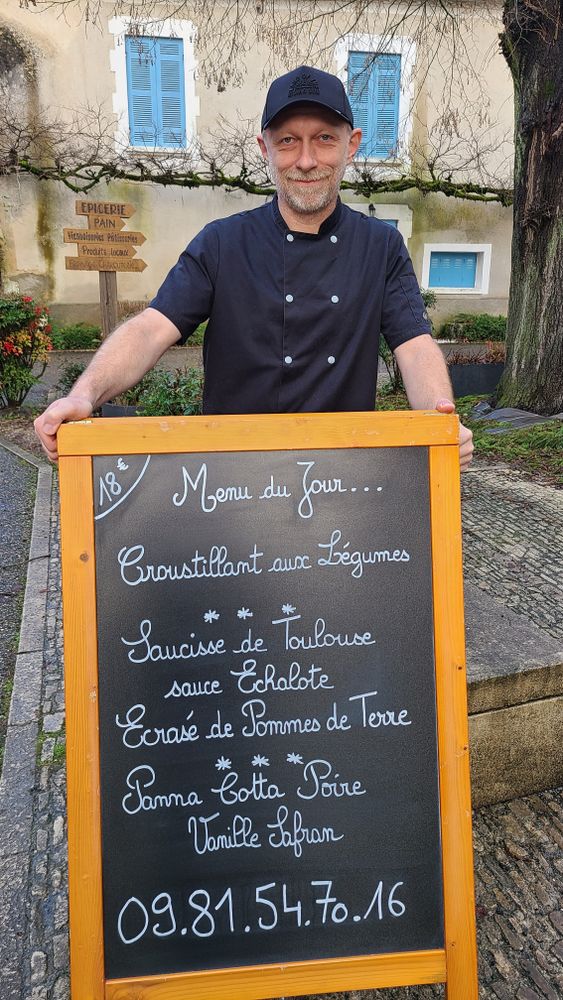 EPICERIE
PAIN
Viennoiseries Pâtisseries
Produits locaux
18€
Menu du Jour...
Croustillant aux Légumes
* * *
Saucisse de Toulouse
sauce Echalote
Ecrasé de Pommes de Terre
* * *
Panna Cotta Poire
Vanille Safran
09.81.54.70.16